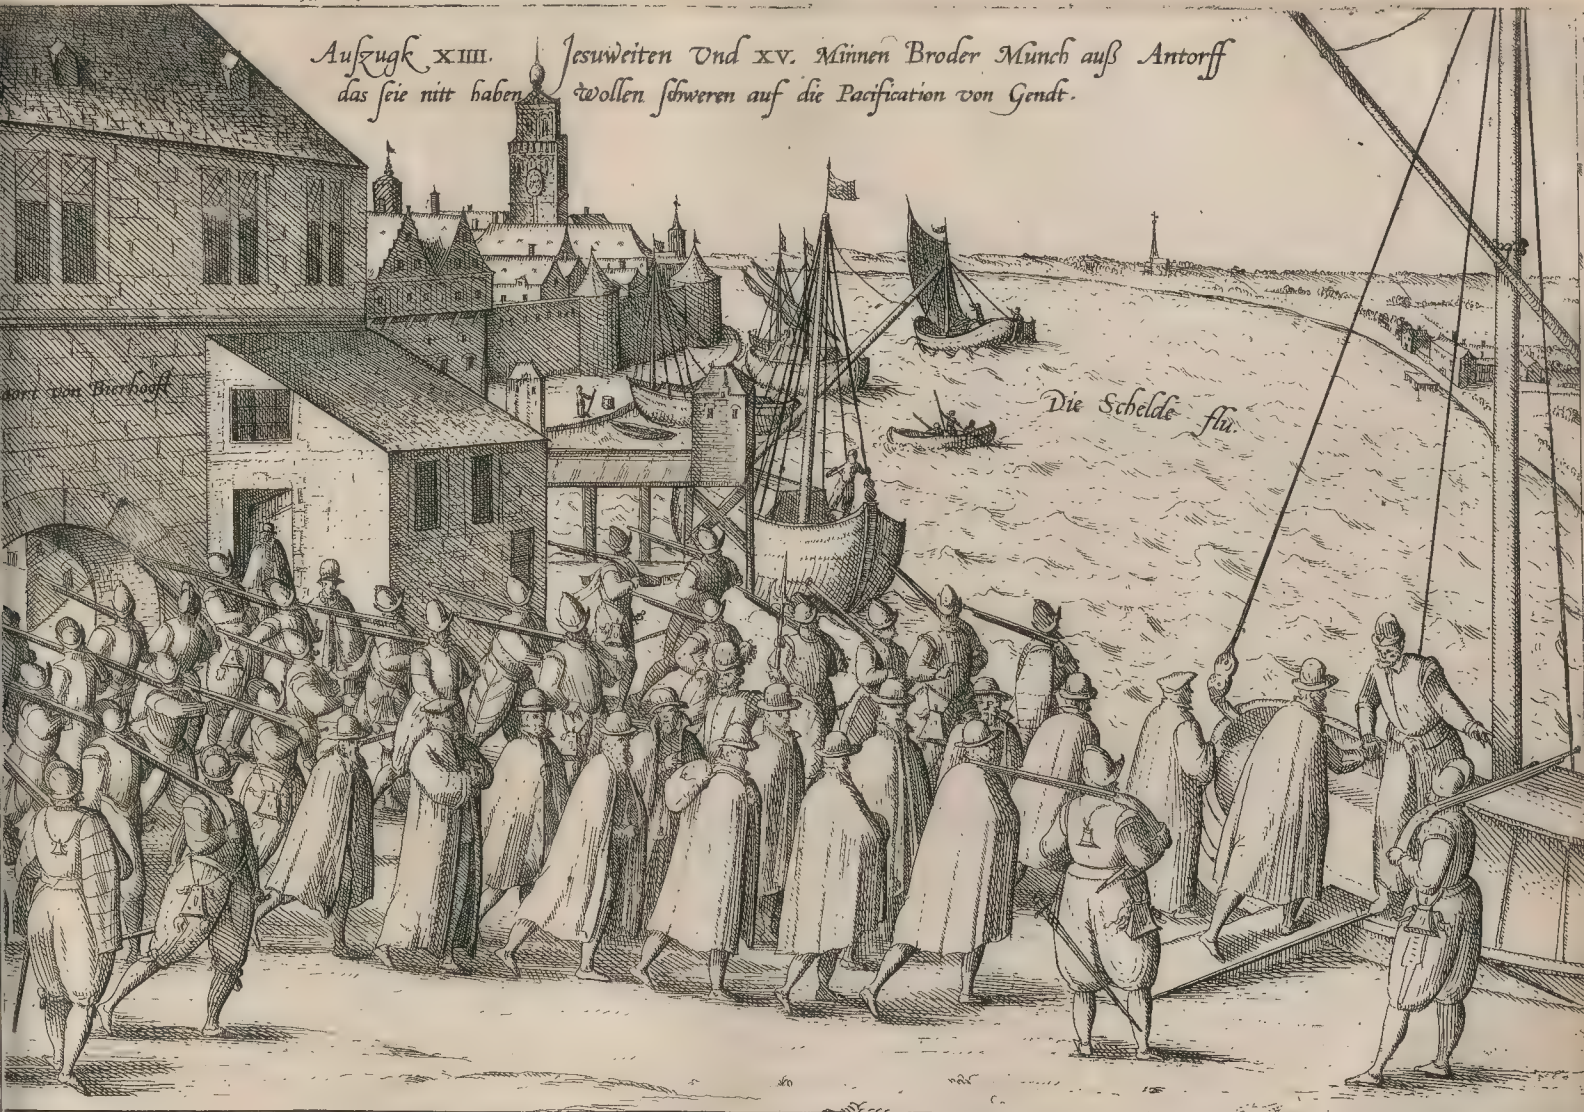 Aufzugk XIIII. Jesuweiten Vnd XV. Minnen Broder Münch auß Antorff
das seie nitt haben Wollen schweren auf die Pacification von Gendt.
von Bierhooft
Die Schelde flu.